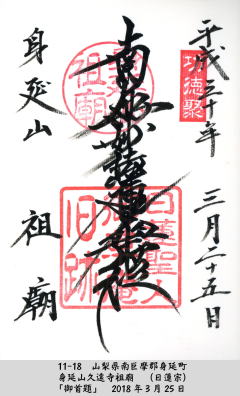 平成三十年 三月二十五日
功徳聚
南無妙法蓮華経
祖廟
日蓮聖人
旧跡
身延山 祖廟
11-18 山梨県南巨摩郡身延町
身延山久遠寺祖廟 (日蓮宗)
「御首題」 2018年3月25日